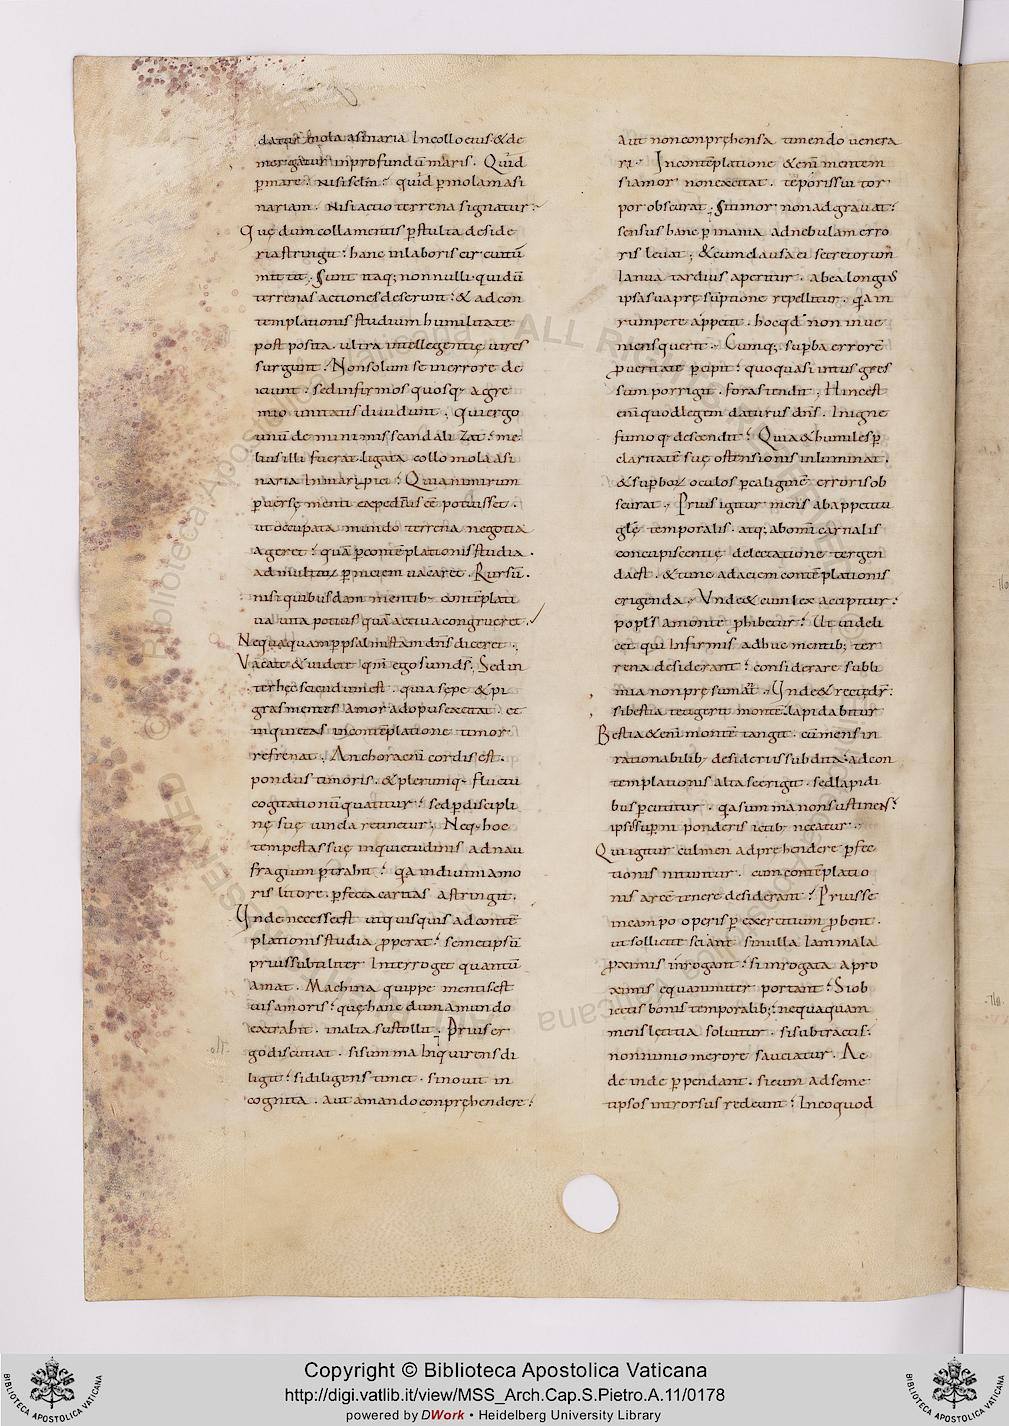 datur mola asinaria In collo eius & de
mergatur in profundū maris. Quid
ꝑ mare. nisi sclm̄? quid ꝑ molam asi
nariam. Nisi actio terrena signatur.
Quę dum colla mentis ꝑ stulta deside
ria stringit: hanc in laboris circuitū
mittit. Sunt itaq; nonnulli. qui dū
terrenas actiones deserunt: & ad con
templationis studium humilitate
post posita. ultra intellegentię uires
surgunt: Non solum se in errore de
iciunt: sed infirmos quosq; a gre
mio unitatis diuidunt. Qui ergo
unū de minimis scandalizat: me
lius illi fuerat. ligata collo mola asi
naria In mari ꝓici: Quia nimirum
ꝑuersę menti expediūs eē potuisset.
ut occupata mundo terrena negotia
ageret: quā ꝑ contēplationis studia.
ad multoꝝ ꝑniciem uacaret. Rursū.
nisi quibusdam mentib; contēplati
ua uita potius quā actiua congrueret.
Nequaquam ꝑ psalmistam dn̄s diceret.
Vacate & uidete qm̄ ego sum dſ; Sed in
ter hęc sciendum est. quia sępe & pi
gras mentes amor ad opus excitat. et
inquietas in contēplatione timor
refrenat. Anchora enī cordis est.
pondus timoris. & plerumq; fluctu
cogitationū quatitur: sed ꝑ discipli
nę suę uincla retinetur; Neq; hoc
tempestas suę inquietudinis ad nau
fragium ꝑtrahit: qa In diuini amo
ris litore. ꝑfecta caritas astringit.
Unde necesse est ut quisquis ad contē
plationis studia ꝓperat: semetipsū
prius subtiliter Interroget quantū
amat. Machina quippe mentis est
uis amoris: quę hanc dum a mundo
extrahit. in alta sustollit. Prius er
go discutiat. si summa Inquirens di
ligit: si diligens timet. si nouit in
cognita. aut amando conpręhendere:
aut non conpręhensa timendo uenera
ri. In contēplatione & enī mentem
si amor non excitat. tepóris sui tor
por obscurat. Si timor non adgrauat:
sensus hanc ꝑ inania ad nebulam erro
ris leuat; & cum clausa ei secretorum
Ianua tardius aperitur. ab ea longius
ipsa sua pręsūptione repellitur. qa in
rumpere appetit. hoc qd̄ non inue
niens querit. Cumq; suꝑba errorē
ꝓ ueritate ꝑcipit: quo quasi intus gres
sum porrigit. foras tendit. Hinc est
enī quod legem daturus dn̄s. In igne
fumoq; descendit: Quia & humiles ꝑ
claritatē suę ostensionis inluminat.
& suꝑboꝝ oculos ꝑ caliginē erroris ob
scurat. Prius igitur mens ab appetitu
glę temporalis. atq; ab omī carnalis
concupiscentię delectatione tergen
da est. & tunc ad aciem contēplationis
erigenda. Vnde & cum lex accipitur:
popls̄ a monte ꝓhibetur: Ut uideli
cet qui Infirmis adhuc mentib; ter
rena desiderant: considerare subli
mia non pręsumāt. Unde & recte dr̄:
si bestia tetigerit montē. lapidabitur
Bestia & enī montē tangit. cū mens in
rationabilib; desideriis subdita: ad con
templationis alta se erigit. sed lapidi
bus ꝑcutitur. qa summa non sustinens:
ipsis suꝑni ponderis ictib; necatur.
Qui igitur culmen adpręhendere ꝑfec
tionis nituntur. cum contēplatio
nis arcē tenere desiderant: Prius se
in campo operis ꝑ exercitium ꝓbent.
ut sollicite sciant si nulla Iam mala
ꝓximis inrogant: si inrogata a pro
ximis equanimiter portant: Si ob
iectis bonis temporalib;: nequaquam
mens lętitia soluitur. si subtractis:
non nimio merore sauciatur. Ac
deinde ꝑpendant. si cum ad seme
tipsos introrsus redeunt: In eo quod
Copyright © Biblioteca Apostolica Vaticana
http://digi.vatlib.it/view/MSS_Arch.Cap.S.Pietro.A.11/0178
powered by DWork • Heidelberg University Library